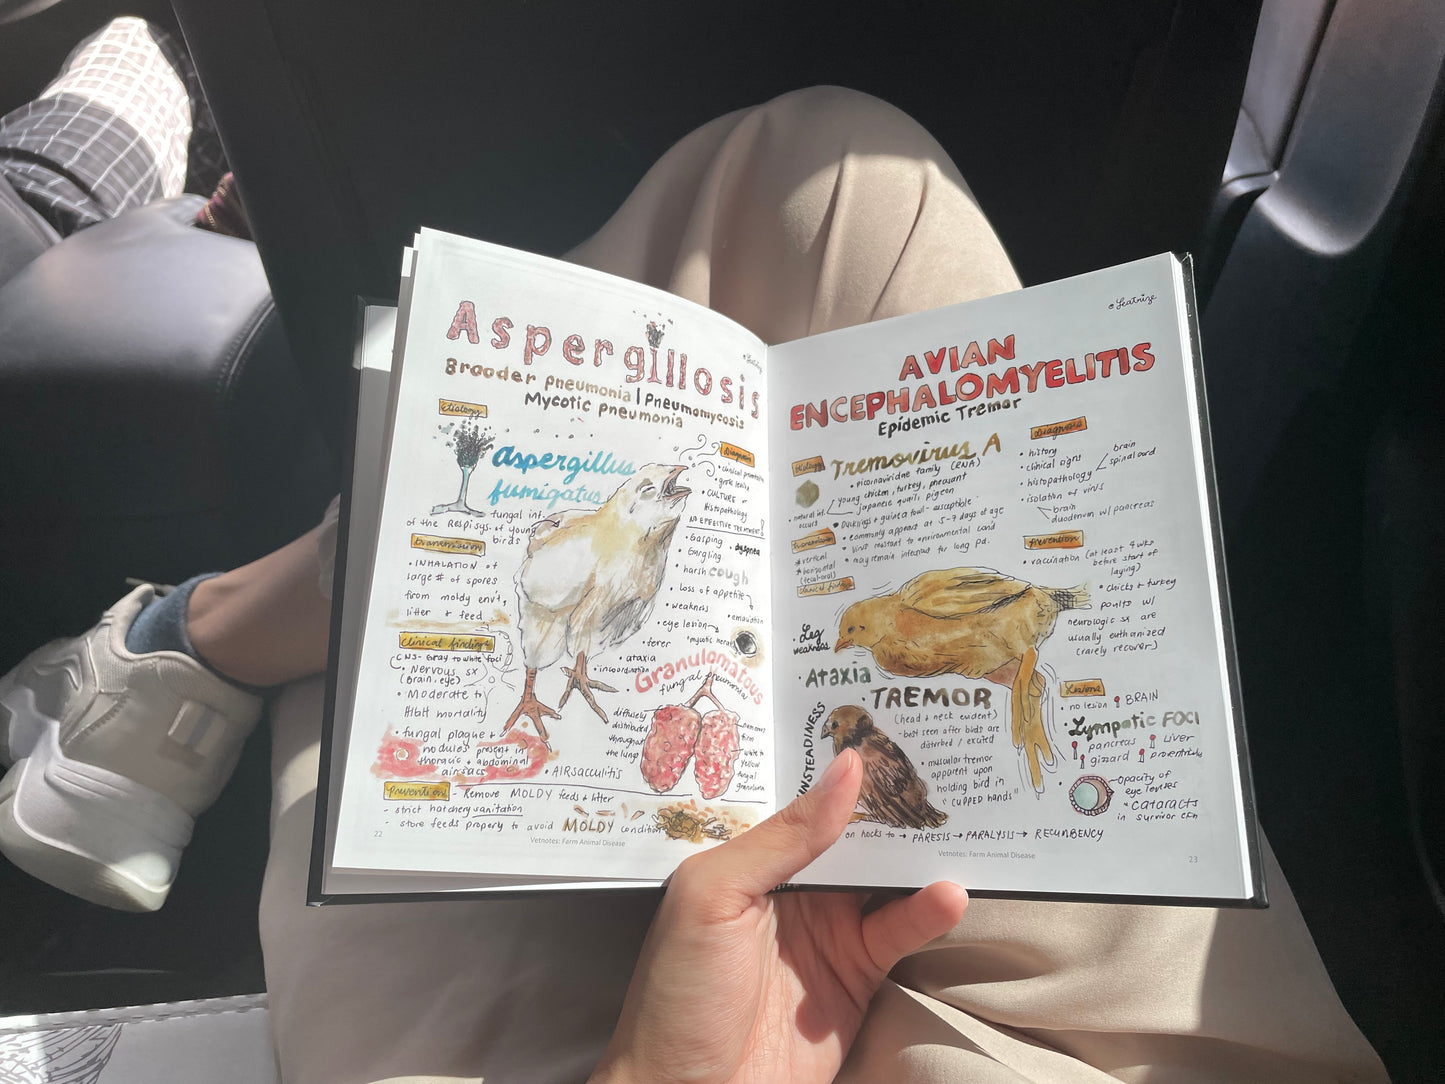 Aspergillosis
Brooder pneumonia | Pneumomycosis
Mycotic pneumonia
etiology
Aspergillus
fumigatus
fungal inf.
of the Resp. sys. of young
birds
transmission
• INHALATION of
large # of spores
from moldy env't,
litter + feed
clinical findings
CNS- Gray to white foci
• Nervous sx
(brain, eye)
• Moderate to
HIGH mortality
• fungal plaque +
nodules present in
thoracic + abdominal
airsacs
• AIRsacculitis
diagnosis
• gross lesion
• CULTURE or
Histopathology
NO EFFECTIVE TREATMENT
• Gasping
• dyspnea
• Gargling
• harsh cough
• Loss of appetite
• weakness
• emaciation
• eye lesion
• fever
• ataxia
• incoordination
Granulomatous
fungal pneumonia
diffusely
distributed
throughout
the lung
numerous
firm
white to
yellow
fungal
granuloma
Prevention
- Remove MOLDY feeds + litter
- strict hatchery sanitation
- store feeds properly to avoid MOLDY condition
22
Vetnotes: Farm Animal Disease
AVIAN
ENCEPHALOMYELITIS
Epidemic Tremor
etiology
Tremovirus A
• picornaviridae family (RNA)
• natural inf.
occurs
young chicken, turkey, pheasant
Japanese quail, pigeon
• Ducklings + guinea fowl - susceptible
• commonly appears at 5-7 days of age
• virus resistant to environmental cond
• may remain infected for long pd.
transmission
* vertical
* horizontal
(fecal-oral)
clinical findings
• Leg
weakness
• Ataxia
• TREMOR
(head + neck evident)
- best seen after birds are
disturbed / excited
• muscular tremor
apparent upon
holding bird in
"cupped hands"
UNSTEADINESS
on hocks to → PARESIS → PARALYSIS → RECUMBENCY
diagnosis
• history
• clinical signs
• histopathology
brain
spinal cord
• isolation of virus
brain
duodenum w/ pancreas
prevention
• vaccination (at least 4 wks
before start of
laying)
• chicks + turkey
poults w/
neurologic sx are
usually euthanized
(rarely recover)
Lesions
no lesion BRAIN
• Lympatic FOCI
pancreas Liver
gizzard proventriculus
opacity of
eye lenses
* CATARACTS
in survivor
Vetnotes: Farm Animal Disease
23